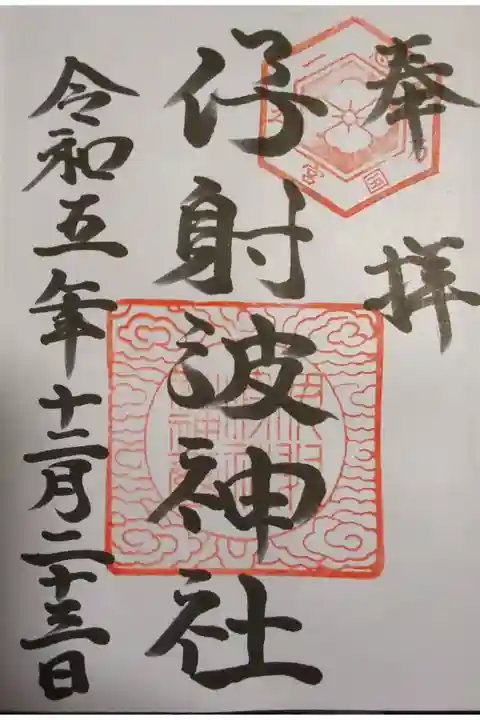 奉拝
伊射波神社
令和五年十二月二十三日